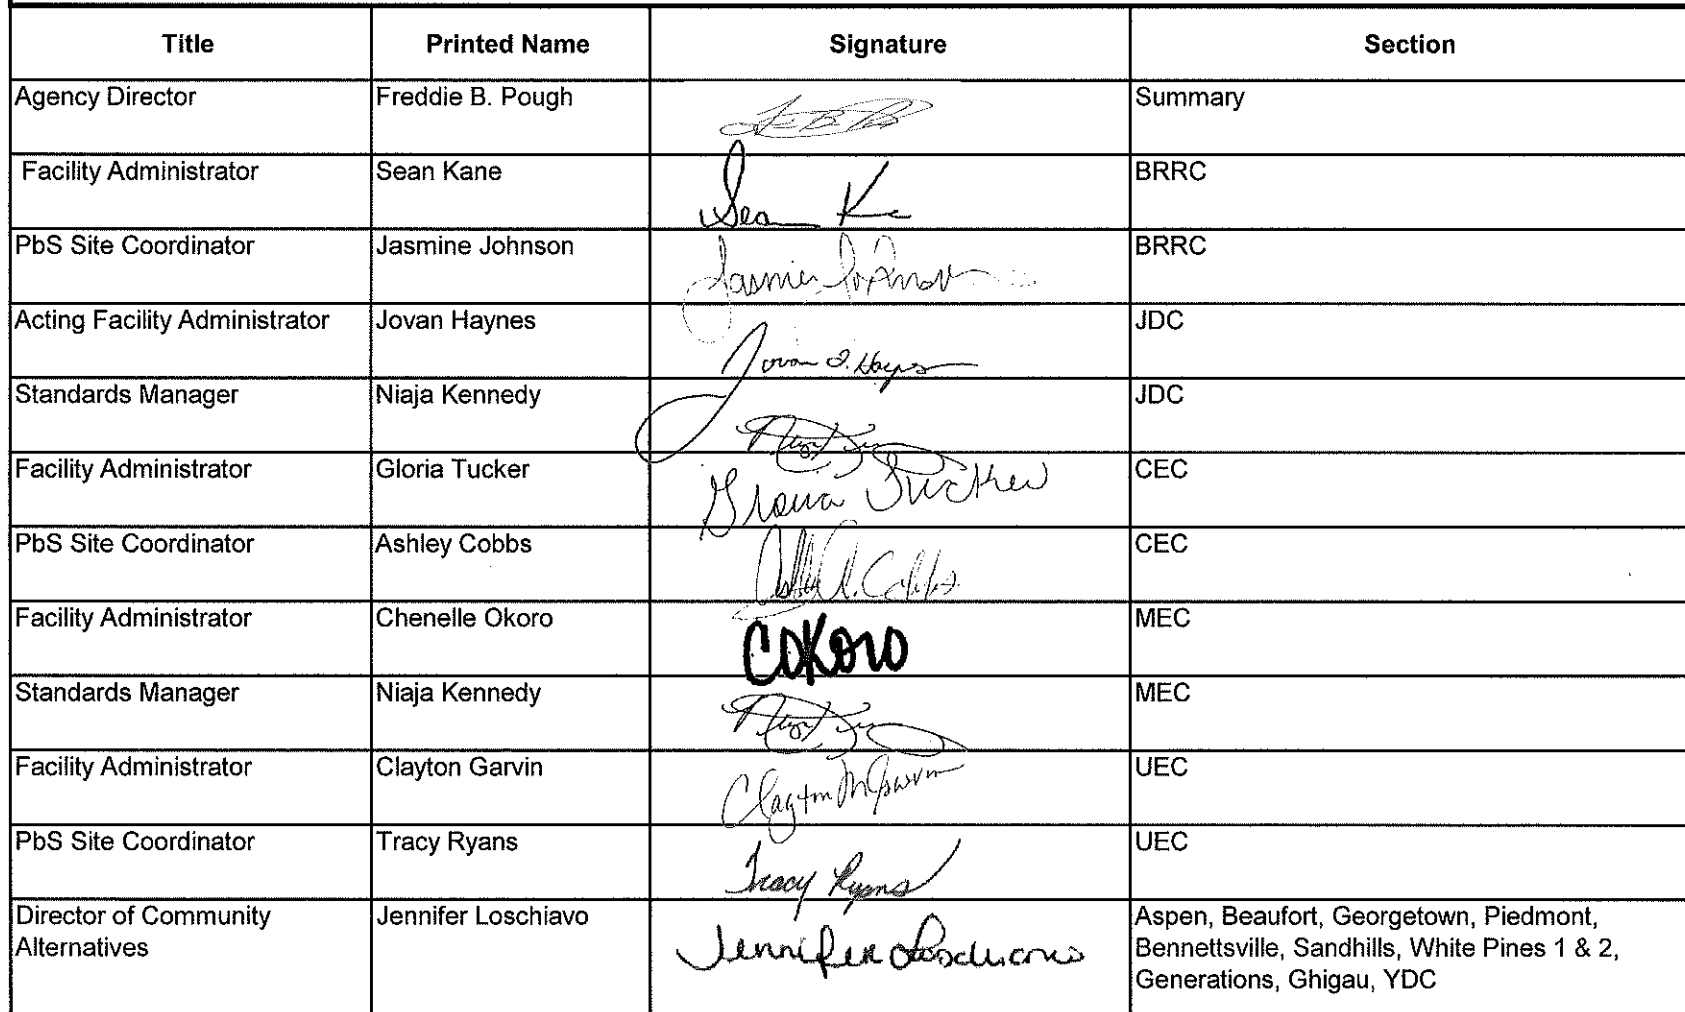 Title Printed Name Signature Section
Agency Director Freddie B. Pough Summary
Facility Administrator Sean Kane Sean K BRRC
PbS Site Coordinator Jasmine Johnson Jasmine Johnson BRRC
Acting Facility Administrator Jovan Haynes Jovan Haynes JDC
Standards Manager Niaja Kennedy JDC
Facility Administrator Gloria Tucker Gloria Tucker CEC
PbS Site Coordinator Ashley Cobbs Ashley A. Cobbs CEC
Facility Administrator Chenelle Okoro COKORO MEC
Standards Manager Niaja Kennedy MEC
Facility Administrator Clayton Garvin Clayton M Garvin UEC
PbS Site Coordinator Tracy Ryans Tracy Ryans UEC
Director of Community Jennifer Loschiavo Jennifer Loschiavo Aspen, Beaufort, Georgetown, Piedmont,
Alternatives Bennettsville, Sandhills, White Pines 1 & 2,
Generations, Ghigau, YDC